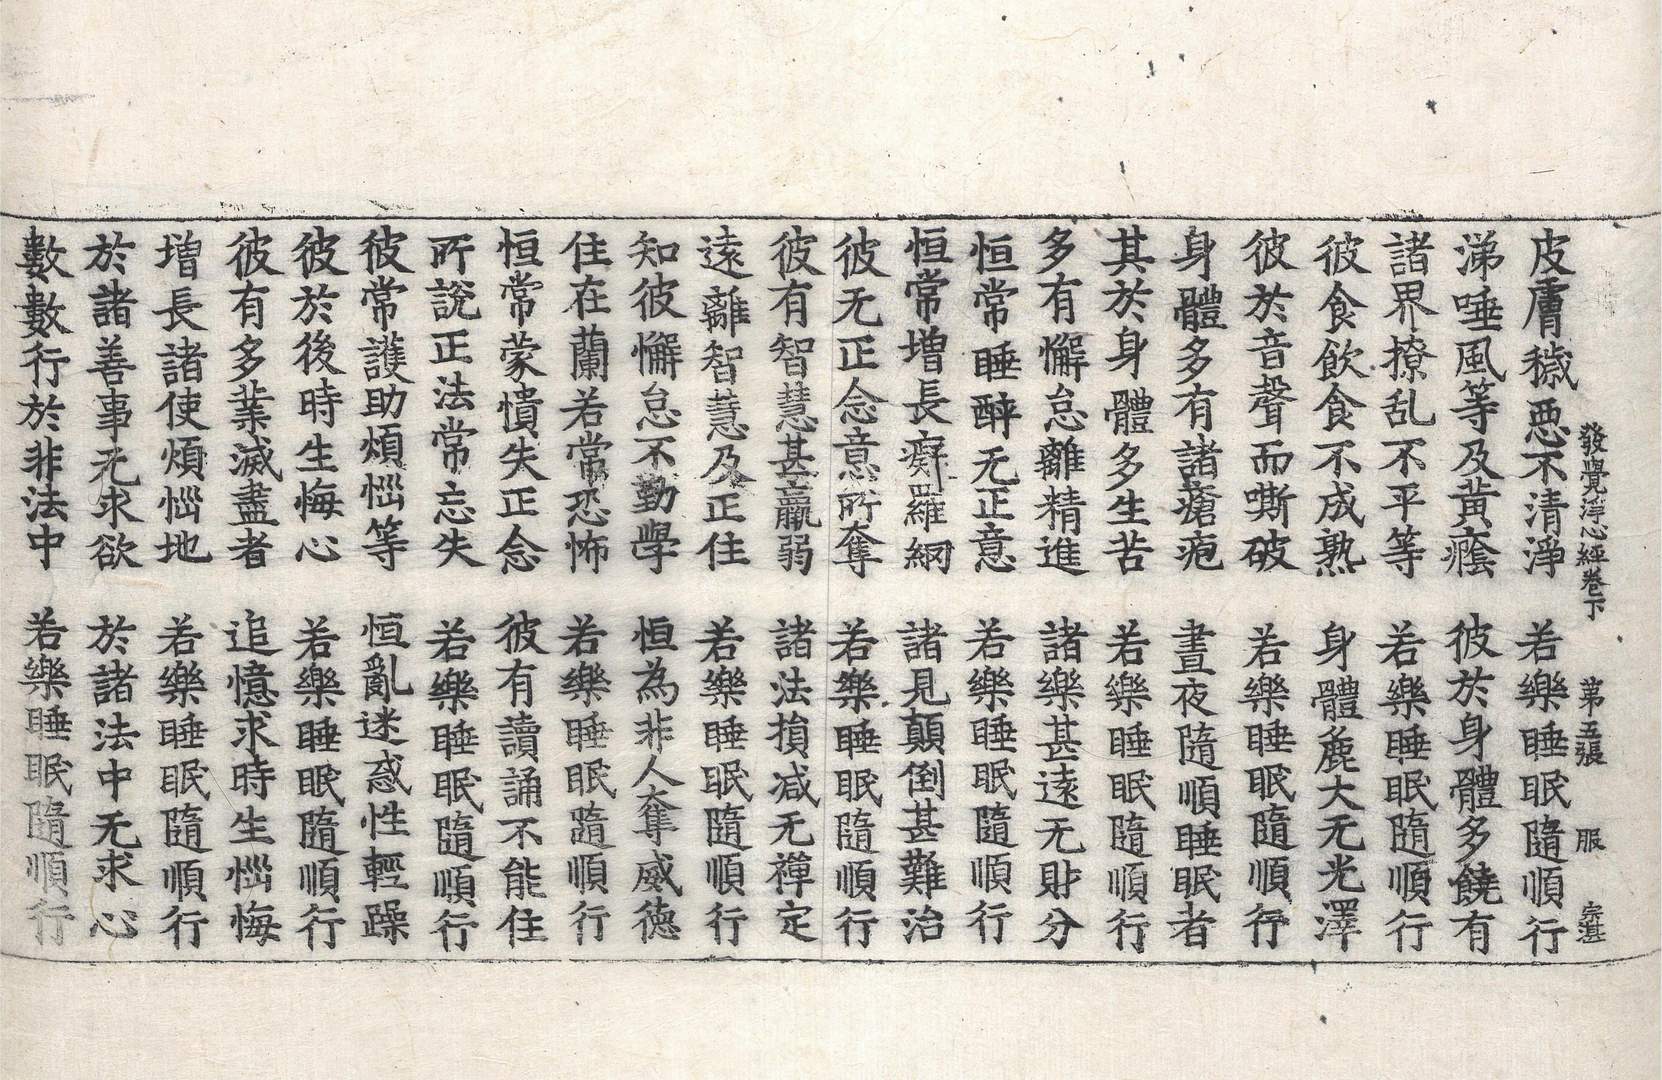 發覺淨心經卷下　第五張　服　宗湛
皮膚穢惡不清淨　若樂睡眠隨順行
涕唾風等及黃癊　彼於身體多饒有
諸界撩乱不平等　若樂睡眠隨順行
彼食飲食不成熟　身體麁大无光澤
彼於音聲而嘶破　若樂睡眠隨順行
身體多有諸瘡疱　晝夜隨順睡眠者
其於身體多生苦　若樂睡眠隨順行
多有懈怠離精進　諸樂甚遠无財分
恒常睡醉无正意　若樂睡眠隨順行
恒常增長癡羅網　諸見顛倒甚難治
彼无正念意所奪　若樂睡眠隨順行
彼有智慧甚羸弱　諸法損减无禪定
遠離智慧及正住　若樂睡眠隨順行
知彼懈怠不勤學　恒為非人奪威德
住在蘭若常恐怖　若樂睡眠隨順行
恒常蒙憒失正念　彼有讀誦不能住
所說正法常忘失　若樂睡眠隨順行
彼常護助煩惱等　恒亂迷惑性輕躁
彼於後時生悔心　若樂睡眠隨順行
彼有多業滅盡者　追憶求時生惱悔
增長諸使煩惱地　若樂睡眠隨順行
於諸善事无求欲　於諸法中无求心
數數行於非法中　若樂睡眠隨順行